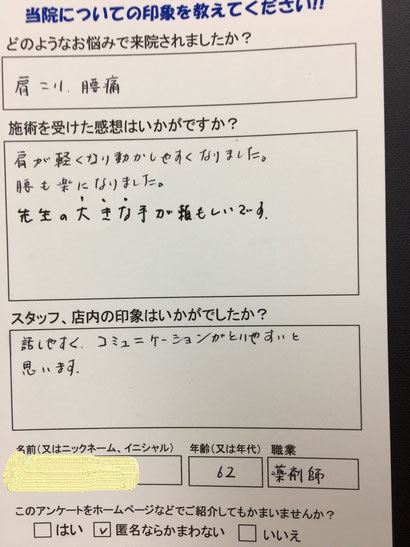 当院についての印象を教えてください!!
どのようなお悩みで来院されましたか？
肩こり、腰痛
施術を受けた感想はいかがですか？
肩が軽くなり動かしやすくなりました。
腰も楽になりました。
先生の大きな手が頼もしいです。
スタッフ、店内の印象はいかがでしたか？
話しやすく、コミュニケーションがとりやすいと
思います。
名前(又はニックネーム、イニシャル) 年齢(又は年代) 職業
62 薬剤師
このアンケートをホームページなどでご紹介してもかまいませんか？
□はい ☑匿名ならかまわない □いいえ